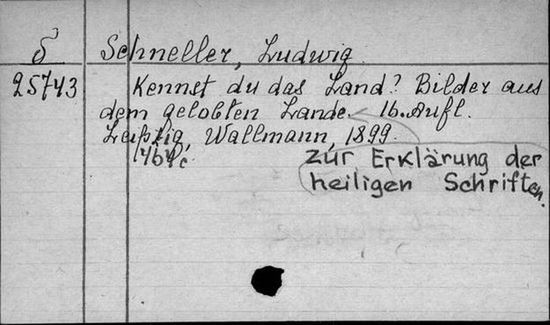 δ Schneller, Ludwig
25743 Kennst du das Land? Bilder aus
dem gelobten Lande 16. Aufl.
Leipzig, Wallmann, 1899.
zur Erklärung der
heiligen Schriften.